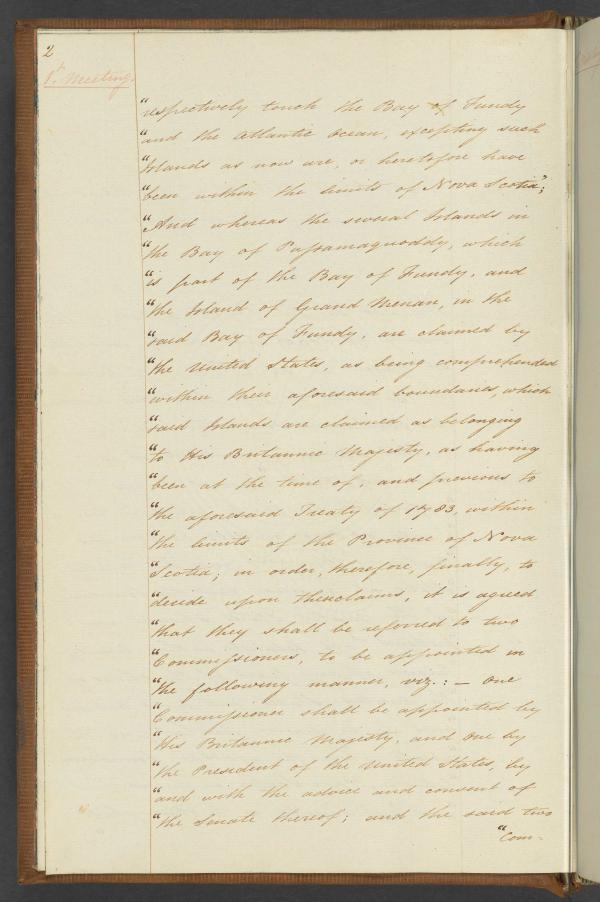 2
1st. Meeting.
"respectively touch the Bay of Fundy
"and the Atlantic Ocean, excepting such
"Islands as now are, or heretofore have
"been within the limits of Nova Scotia";
"And whereas the several Islands in
"the Bay of Passamaquoddy, which
"is part of the Bay of Fundy, and
"the Island of Grand Menan, in the
"said Bay of Fundy, are claimed by
"the United States, as being comprehended
"within their aforesaid boundaries, which
"said Islands are claimed as belonging
"to His Britannic Majesty, as having
"been at the time of, and previous to
"the aforesaid Treaty of 1783, within
"the limits of the Province of Nova
"Scotia; in order, therefore, finally, to
"decide upon these claims, it is agreed
"that they shall be referred to two
"Commissioners, to be appointed in
"the following manner, viz.: – One
"Commissioner shall be appointed by
"His Britannic Majesty, and One by
"the President of the United States, by
"and with the advice and consent of
"the Senate thereof; and the said two
"Com-